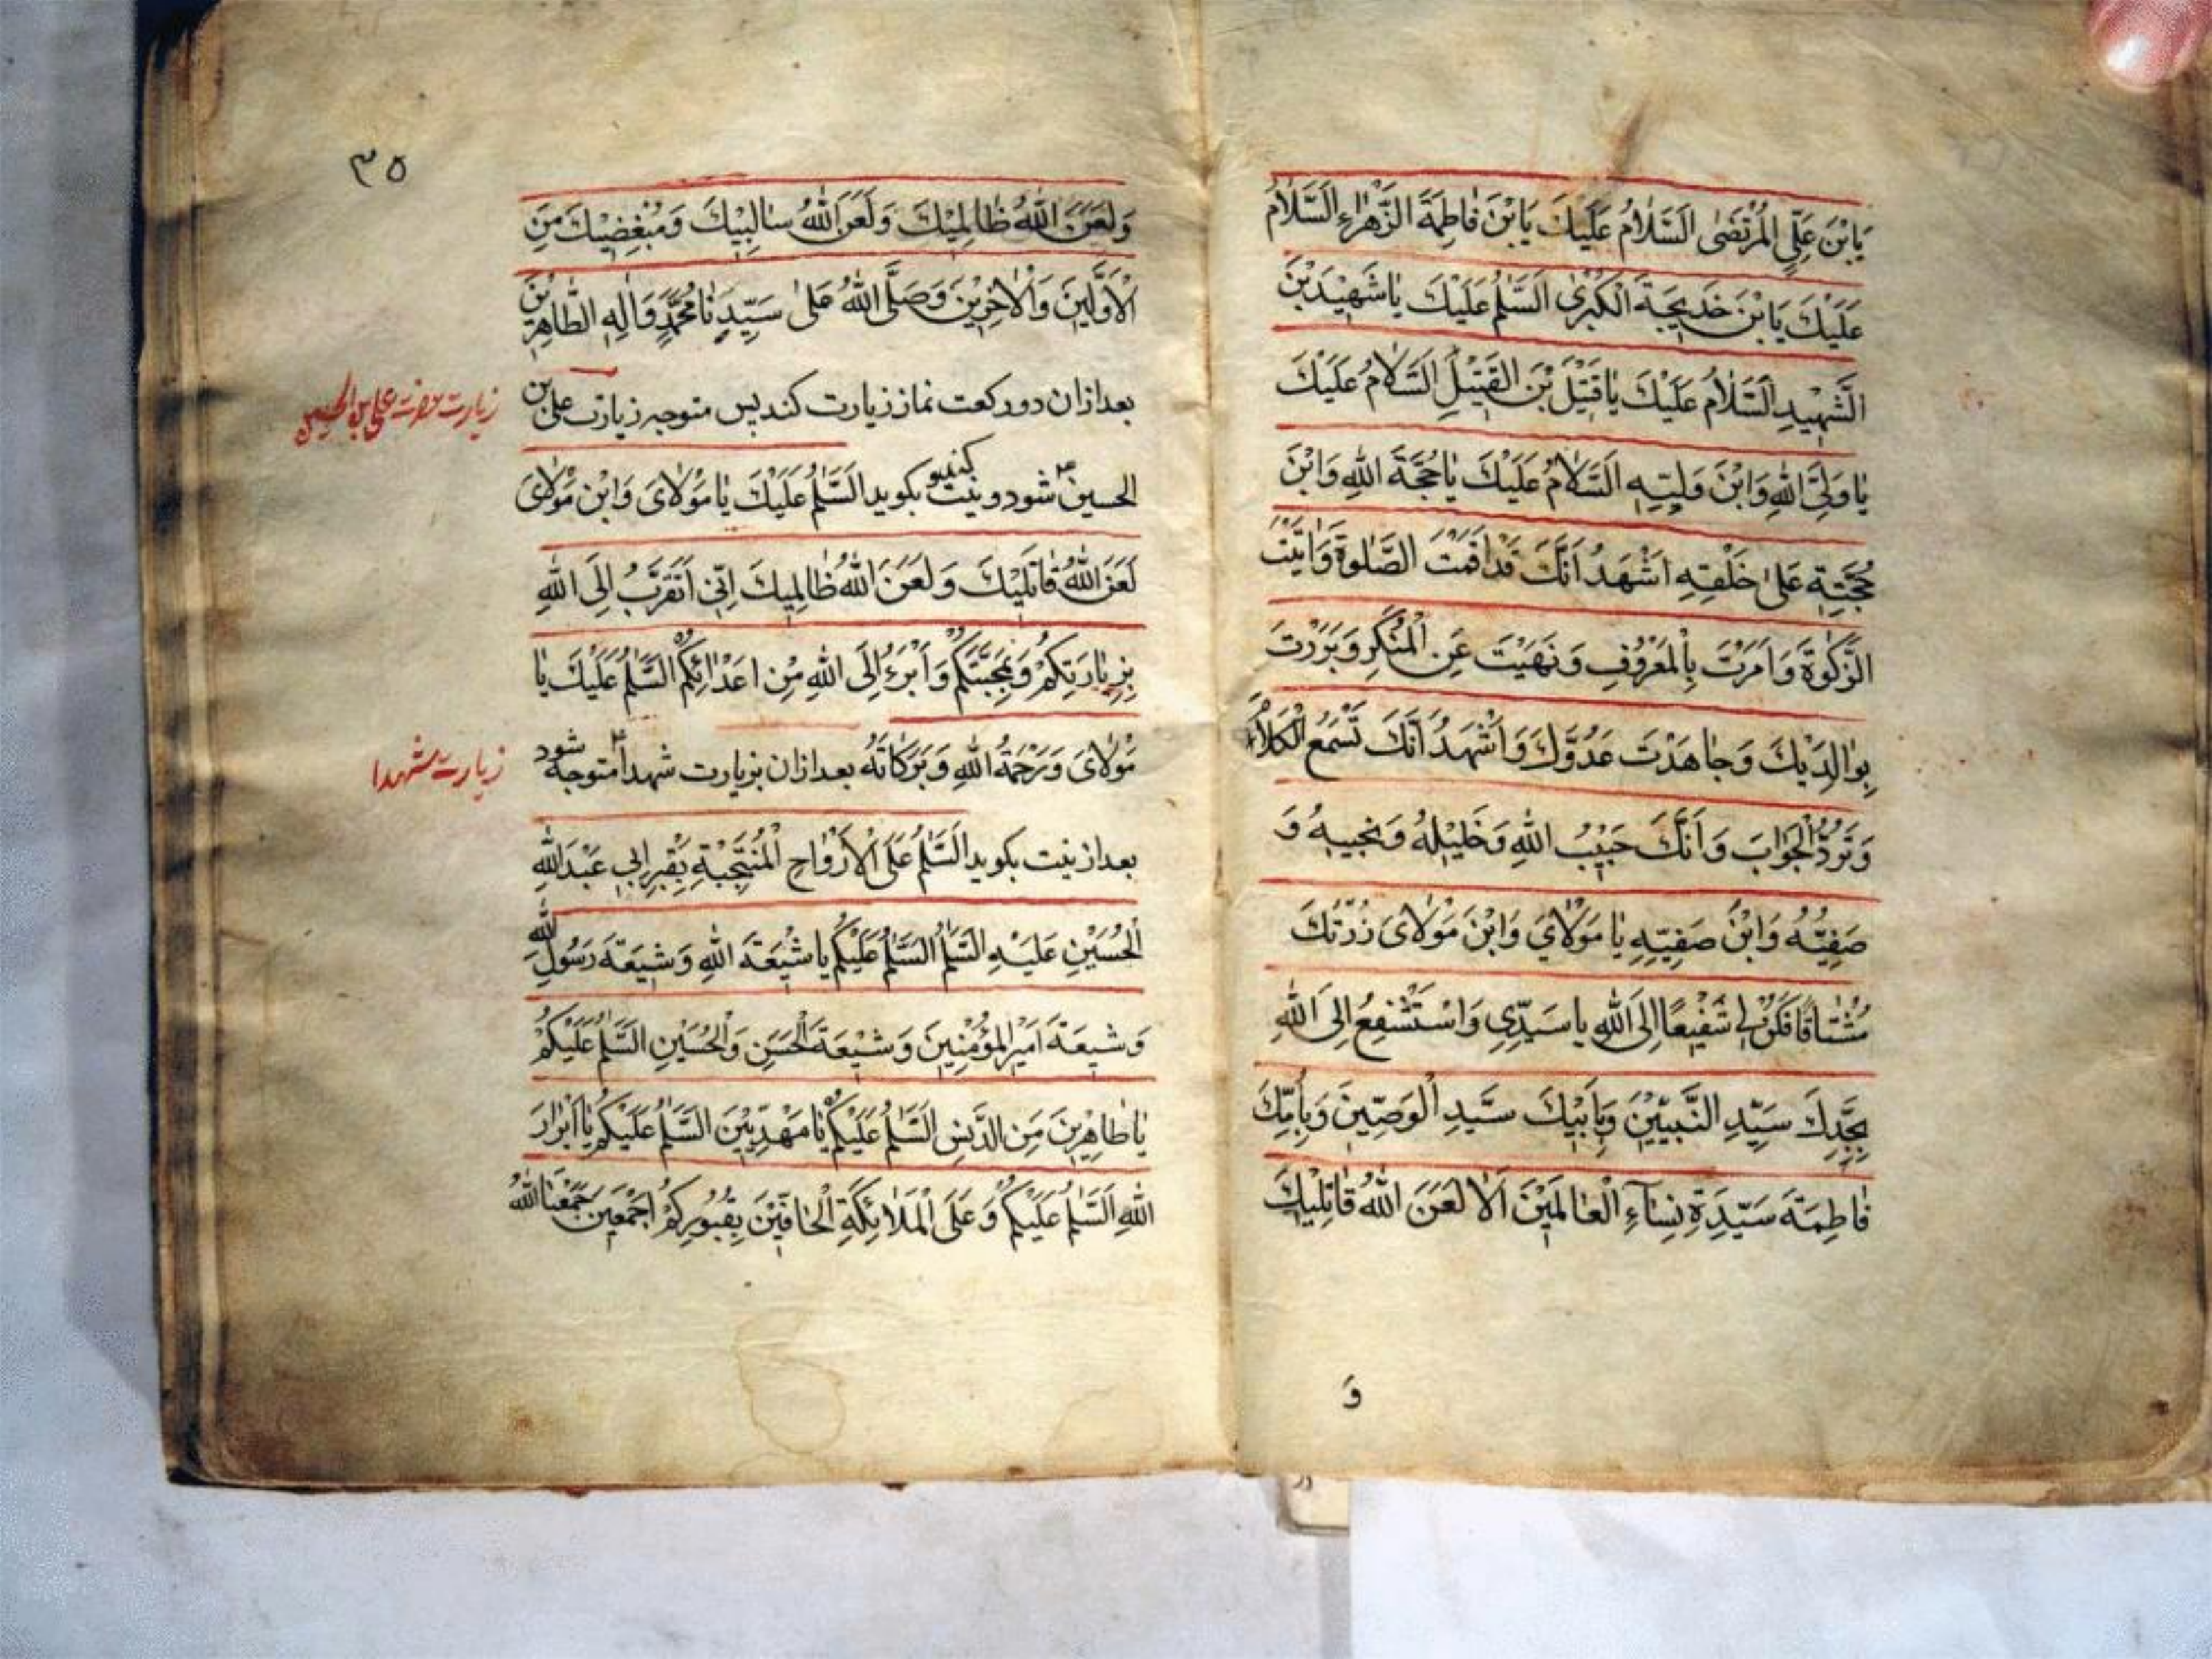 يَابْنَ عَلِيٍّ الْمُرْتَضٰى اَلسَّلاٰمُ عَلَيْكَ يَابْنَ فَاطِمَةَ الزَّهْرٰاءِ اَلسَّلاٰمُ
عَلَيْكَ يَابْنَ خَدِيجَةَ الْكُبْرٰى اَلسَّلٰمُ عَلَيْكَ يٰا شَهِيْدَ بْنَ
الشَّهِيْدِ اَلسَّلاٰمُ عَلَيْكَ يٰا قَتِيْلَ بْنَ الْقَتِيْلِ اَلسَّلاٰمُ عَلَيْكَ
يٰا وَلِيَّ اللّٰهِ وَابْنَ وَلِيِّهِ اَلسَّلاٰمُ عَلَيْكَ يٰا حُجَّةَ اللّٰهِ وَابْنَ
حُجَّتِهِ عَلىٰ خَلْقِهِ اَشْهَدُ اَنَّكَ قَدْ اَقَمْتَ الصَّلٰوةَ وَاٰتَيْتَ
الزَّكٰوةَ وَاَمَرْتَ بِالْمَعْرُوْفِ وَنَهَيْتَ عَنِ الْمُنْكَرِ وَبَرَرْتَ
بِوٰالِدَيْكَ وَجٰاهَدْتَ عَدُوَّكَ وَاَشْهَدُ اَنَّكَ تَسْمَعُ الْكَلاٰمَ
وَتَرُدُّ الْجَوٰابَ وَاَنَّكَ حَبِيْبُ اللّٰهِ وَخَلِيْلُهُ وَنَجِيبُهُ وَ
صَفِيُّهُ وَابْنُ صَفِيِّهِ يٰا مَوْلاٰيَ وَابْنَ مَوْلاٰىَ زُرْتُكَ
مُشْتٰاقًا فَكُنْ لِى شَفِيْعًا اِلَى اللّٰهِ يٰا سَيِّدِى وَاسْتَشْفِعُ اِلَى اللّٰهِ
بِجَدِّكَ سَيِّدِ النَّبِيِّيْنَ وَبِاَبِيْكَ سَيِّدِ الْوَصِيِّينَ وَبِاُمِّكَ
فٰاطِمَةَ سَيِّدَةِ نِسٰاءِ الْعٰالَمِيْنَ اَلاٰ لَعَنَ اللّٰهُ قٰاتِلِيْكَ
وَ
٣٥
وَلَعَنَ اللّٰهُ ظٰالِمِيْكَ وَلَعَنَ اللّٰهُ سٰالِبِيْكَ وَمُبْغِضِيْكَ مِنَ
الْاَوَّلِينَ وَالْاٰخِرِيْنَ وَصَلَّى اللّٰهُ عَلىٰ سَيِّدِنٰا مُحَمَّدٍ وَاٰلِهِ الطّٰاهِرِيْنَ
بعد ازان دو ركعت نماز زيارت كند پس متوجه زيارت على بن
زيارت حضرت على بن الحسين
الحسين ع شود و نيت كنيد بكويد اَلسَّلٰمُ عَلَيْكَ يٰا مَوْلاٰىَ وَابْنَ مَوْلاٰىَ
لَعَنَ اللّٰهُ قٰاتِلِيْكَ وَلَعَنَ اللّٰهُ ظٰالِمِيكَ اِنّىِ اَتَقَرَّبُ اِلَى اللّٰهِ
بِزِيٰارَتِكُمْ وَبِمَحَبَّتِكُمْ وَاَبْرَءُ اِلَى اللّٰهِ مِنْ اَعْدٰائِكُمْ اَلسَّلٰمُ عَلَيْكَ يٰا
مَوْلاٰىَ وَرَحْمَةُ اللّٰهِ وَبَرَكَاتُهُ بعد ازان بزيارت شهدا متوجه شود
زيارت شهدا
بعد از نيت بكويد اَلسَّلٰمُ عَلَى الْاَرْوٰاحِ الْمُنْتَجَبَةِ بِقَبْرِ اَبِى عَبْدِ اللّٰهِ
الْحُسَيْنِ عَلَيْهِ السَّلٰمُ اَلسَّلٰمُ عَلَيْكُمْ يٰا شِيْعَةَ اللّٰهِ وَشِيْعَةَ رَسُوْلِ اللّٰهِ
وَشِيعَةَ اَمِيْرِ الْمُؤْمِنِيْنَ وَشِيْعَةَ الْحَسَنِ وَالْحُسَيْنِ اَلسَّلٰمُ عَلَيْكُمْ
يٰا طٰاهِرِيْنَ مِنَ الدَّنَسِ اَلسَّلٰمُ عَلَيْكُمْ يٰا مَهْدِيِّيْنَ اَلسَّلٰمُ عَلَيْكُمْ يٰا اَبْرٰارَ
اللّٰهِ اَلسَّلٰمُ عَلَيْكُمْ وَعَلَى الْمَلاٰئِكَةِ الْحٰافِّيْنَ بِقُبُوْرِكُمْ اَجْمَعِيْنَ جَمَعَنَا اللّٰهُ